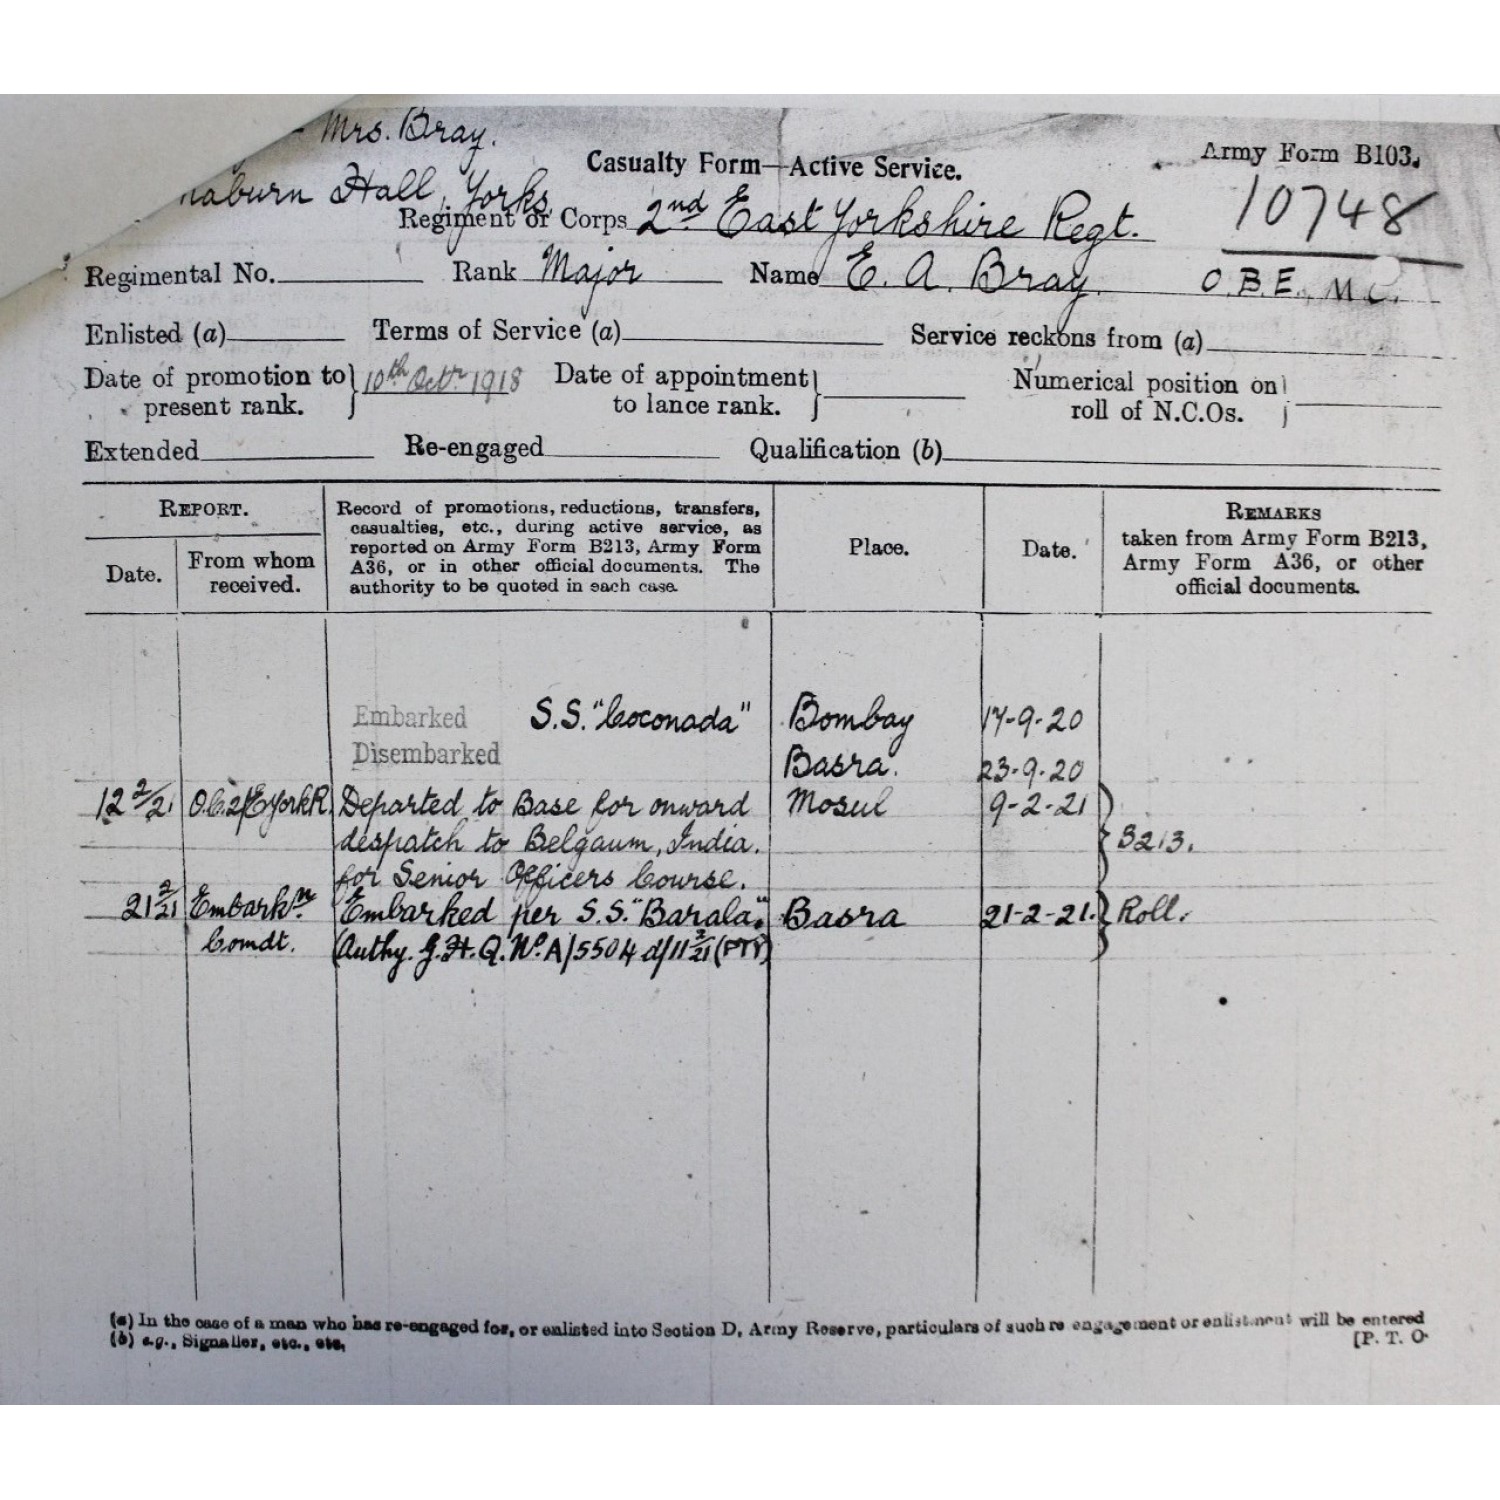 Mrs. Bray.
Hall, Yorks.
Casualty Form—Active Service.
Army Form B103.
10748
Regiment or Corps 2nd East Yorkshire Regt.
Regimental No. Rank Major Name E. A. Bray. O.B.E., M.C.
Enlisted (a) Terms of Service (a) Service reckons from (a)
Date of promotion to present rank. } 10th Octr 1918 Date of appointment to lance rank. } Numerical position on roll of N.C.Os. }
Extended Re-engaged Qualification (b)
REPORT.
Date.
From whom received.
Record of promotions, reductions, transfers,
casualties, etc., during active service, as
reported on Army Form B213, Army Form
A36, or in other official documents. The
authority to be quoted in each case.
Place.
Date.
REMARKS
taken from Army Form B213,
Army Form A36, or other
official documents.
Embarked S.S. "Coconada" Bombay 17-9-20
Disembarked Basra. 23-9-20
12 2/21 O.C. 2/E. York R. Departed to Base for onward Mosul 9-2-21
despatch to Belgaum, India. B213.
for Senior Officers Course.
21 2/21 Embarkn. Embarked per S.S. "Barala". Basra 21-2-21. Roll.
Comdt. (Authy. G.H.Q. No. A/5504 d/11 2/21
(a) In the case of a man who has re-engaged for, or enlisted into Section D, Army Reserve, particulars of such re-engagement or enlistment will be entered
(b) e.g., Signaller, etc., etc.
[P. T. O.